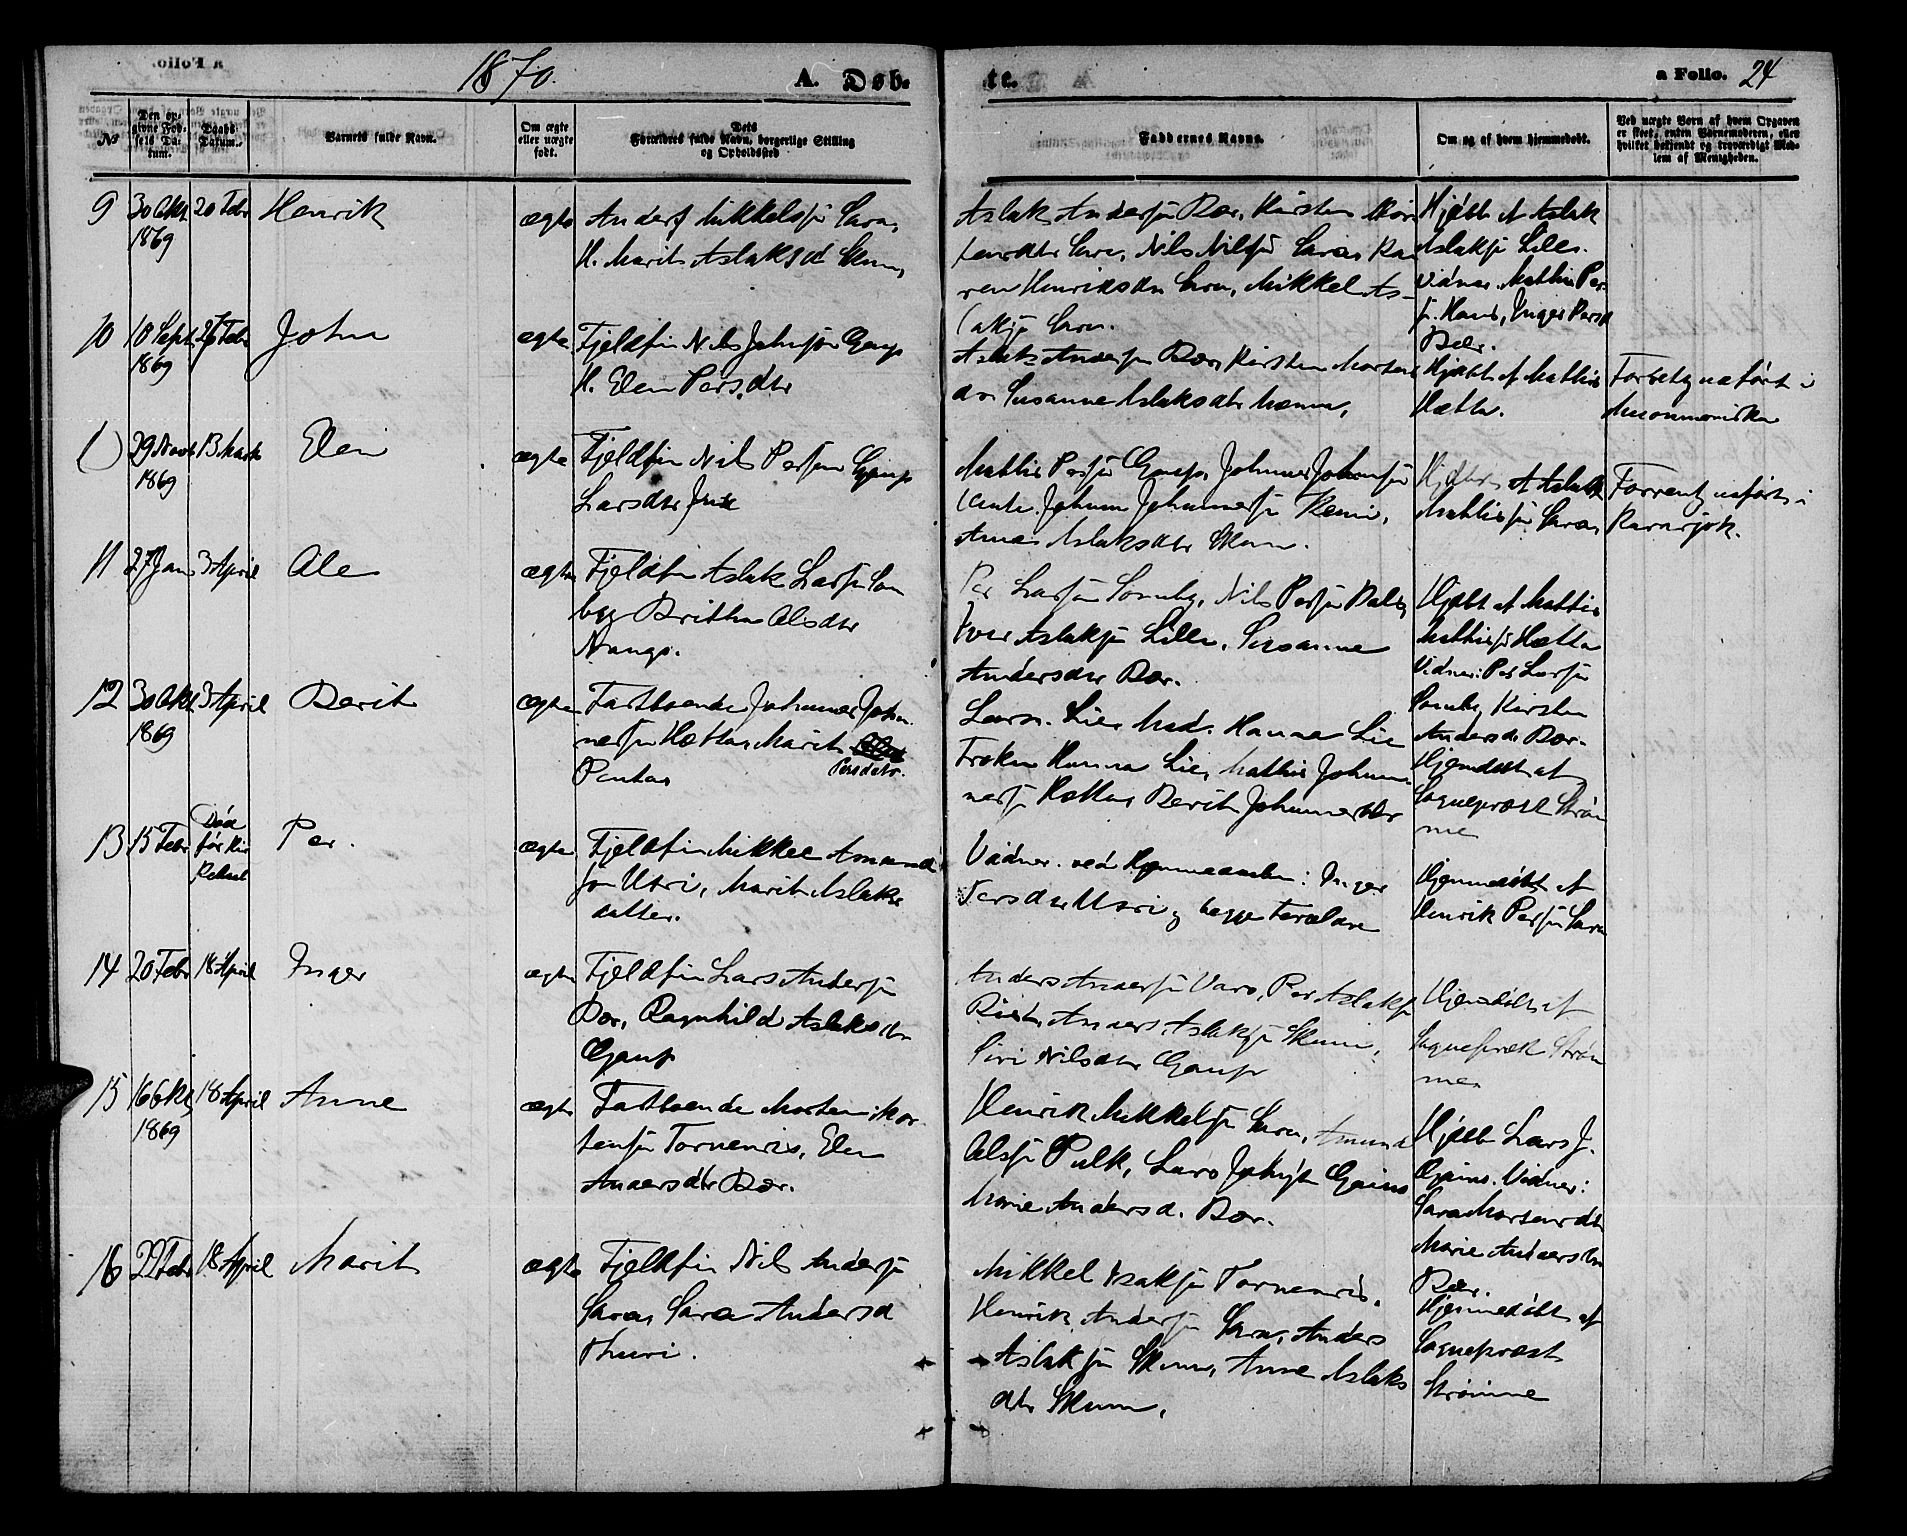 1870. A. Døb-
te. a Folio. 24
No Den opgivne Fødsels Datum. Daabs Datum. Barnets fulde Navn. Om ægte eller uægte født. Dets Forældres fulde Navn, borgerlige Stilling og Opholdssted
Faddernes Navne. Om og af hvem hjemmedøbt. Ved uægte Børn af hvem Opgaven er skeet, enten Barnemoderen, eller hvilket bekjendt og troværdigt Medlem af Menigheden.
9 30 Okt 1869 20 Febr Henrik ægte
Anders Mikkelsjn Sara,
H. Marit Aslaksd Skum,
Aslak Andersjn Bær, Kirsten Mor
tensdtr Sara, Nils Nilsjn Sara, Ka
ren Henriksdtr Sara, Mikkel As-
laksjn Sara.
Hjdbt af Aslak
Aslaksjn Lille.
Vidner Mathis Per
sjn, Inger Persd
Bær.
10 10 Sept 1869 27 Febr John ægte
Fjeldfin Nils Johnsjøn Gaup
H. Elen Persdtr
Aslak Andersjn Bær, Kirsten Mortens
dtr Susanne Aslaksdtr
Hjdbt af Mathis
Hætta.
29 Novb 1869 13 Marts Elen ægte
Fjeldfin Nils Persjøn Gaup
Larsdtr
Mathis Persjn Gaup, Johannes Johansjn
Johan Johannessjn Kemi,
Anna Aslaksdtr Skum.
af Aslak
Mathisjn Sara,
Karasjok.
11 27 Jan 3 April Ole ægte
Fjeldfin Aslak Larsjn Som
by, Britha Olsdtr
Nango.
Per Larsjn Somby, Nils Persjn
Iver Aslaksjn Lille, Susanne
Andersdtr Bær.
Hjdbt af Mathis
Mathisjn Hætta
Vidner: Per Larsjn
Somby, Kirsten
Andersdtr Bær.
12 30 Okt 1869 3 April Berit ægte
Fastboende Johannes Johan
nesjn Hætta, Marit
Persdatr.
Pentha
Lie, Mad. Hanna Lie
Frøken Hanna Lie, Mathis Johan
nesjn Hætta, Berit Johannesdtr
Hjemdøbt af
Sognepræst Strøm
me
13 15 Febr Død før Per. ægte
Fjeldfin Mikkel Amund
sjn Utsi, Marit Aslaks
datter.
Vidner ved Hjemmedaaben: Inger
Persdtr Utsi og begge Forældre
Hjemmedøbt af
Henrik Persjn Sara
14 20 Febr 18 April Inger ægte
Fjeldfin Lars Andersjn
Bær, Ragnhild Aslaksdtr
Gaup
Anders Andersjn Vars, Per Aslaksjn
Anders Aslaksjn Skum,
Siri Nilsdtr Gaup
Hjemdøbt af
Sognepræst Strøm
me
15 16 Okt 1869 18 April Anne ægte
Fastboende Morten Mor
tensjn Tornensis, Elen
Andersdtr Bær.
Henrik Mikkelsjn Sara, Amund
Olsjn Pulk, Lars Gaino
Marie Andersd. Bær.
Hjdbt Lars J.
Gaino. Vidner:
Sara Mortensdtr
Marie Andersdtr
Bær.
16 22 Febr 18 April Marit ægte
Fjeldfin Nils Andersjn
Sara, Sara Andersd
Thuri.
Mikkel Isaksjn Tornensis,
Henrik Andersjn Sara, Anders
Aslaksjn Skum, Anne Aslaks
dtr Skum.
Hjemmedøbt af
Sognepræst
Strømme